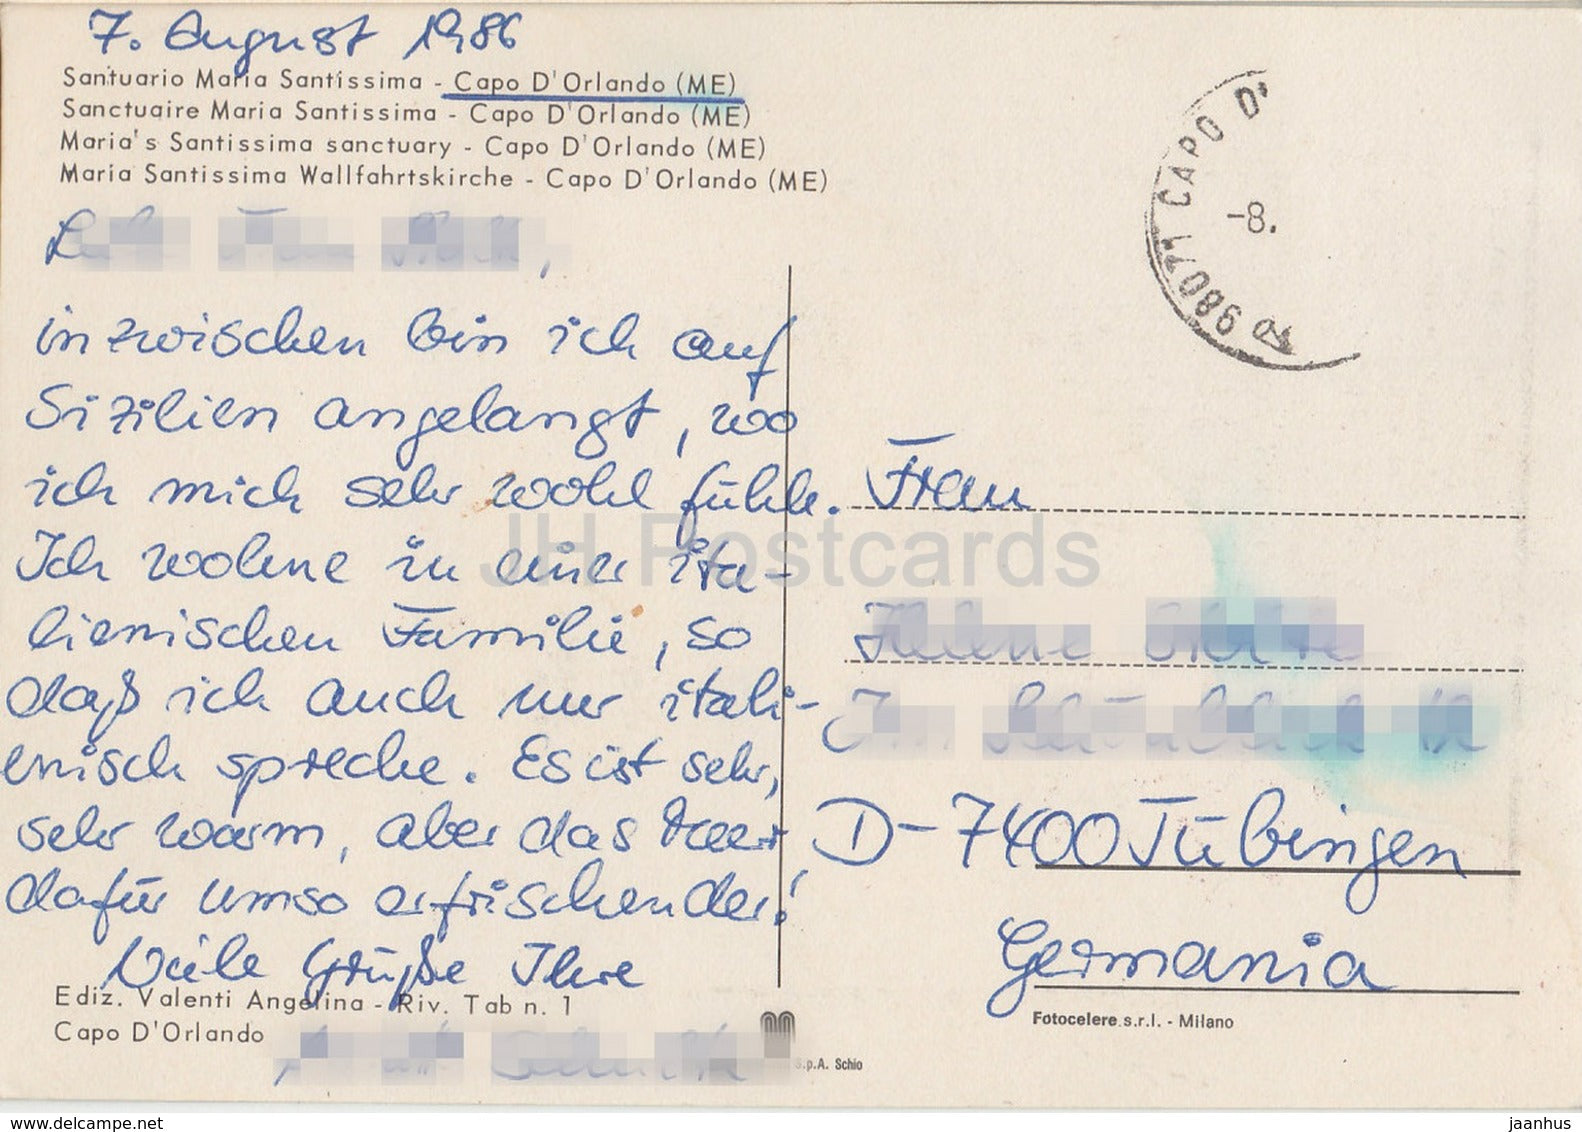 7. August 1986
Santuario Maria Santissima - Capo D'Orlando (ME)
Sanctuaire Maria Santissima - Capo D'Orlando (ME)
Maria's Santissima sanctuary - Capo D'Orlando (ME)
Maria Santissima Wallfahrtskirche - Capo D'Orlando (ME)
98071 CAPO D'
-8.
inzwischen bin ich auf
Sizilien angelangt, wo
ich mich sehr wohl fühle.
Ich wohne in einer ita-
lienischen Familie, so
daß ich auch nur itali-
enisch spreche. Es ist sehr,
sehr warm, aber das Meer
dafür umso erfrischender!
Viele Grüße Ihre
Frau
D-7400 Tübingen
Germania
JH Postcards
Ediz. Valenti Angelina - Riv. Tab n. 1
Capo D'Orlando
Fotocelere s.r.l. - Milano
S.p.A. Schio
www.delcampe.net
jaanhus